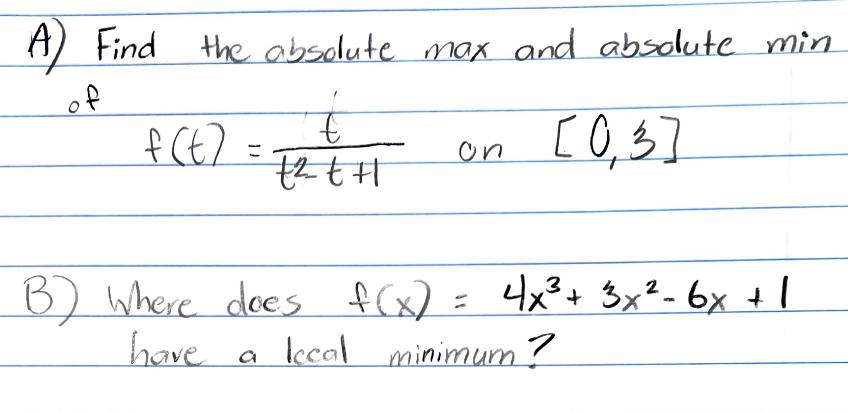 A) Find the absolute max and absolute min
of
f(t) = t / t² t +1 on [0,3]
B) Where does f(x) = 4x³ + 3x² - 6x + 1
have a local minimum?